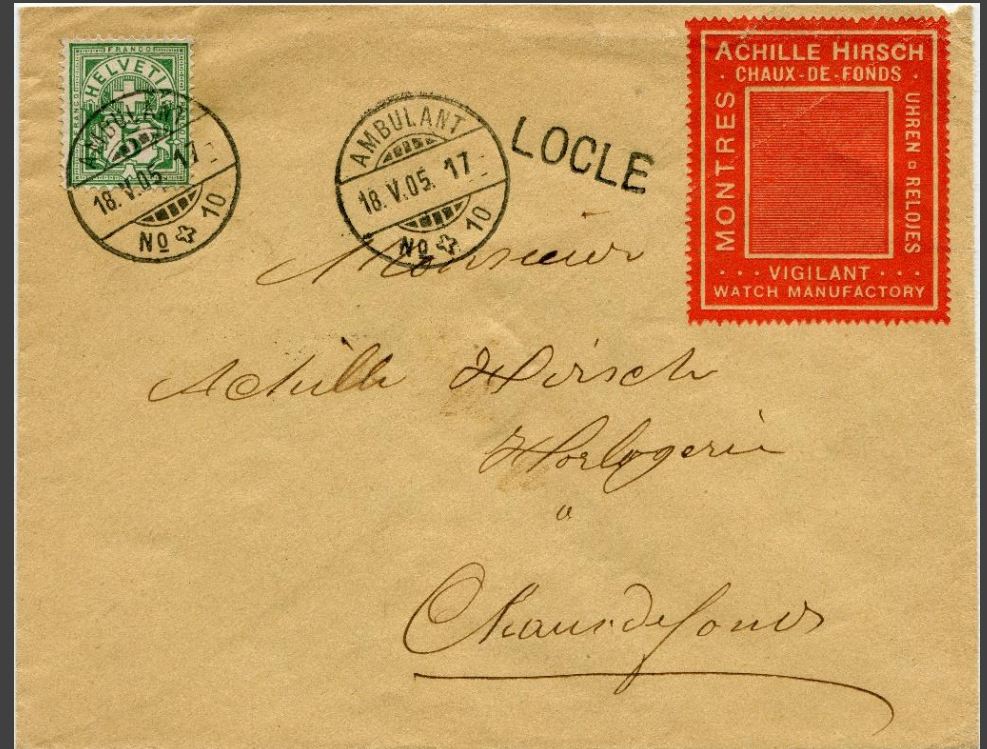 FRANCO
HELVETIA
AMBULANT
18.V.05. 17
No 10
AMBULANT
18.V.05. 17
No 10
LOCLE
ACHILLE HIRSCH
CHAUX-DE-FONDS
MONTRES
UHREN RELOJES
VIGILANT
WATCH MANUFACTORY
Monsieur
Achille Hirsch
Horlogerie
a
Chauxdefonds